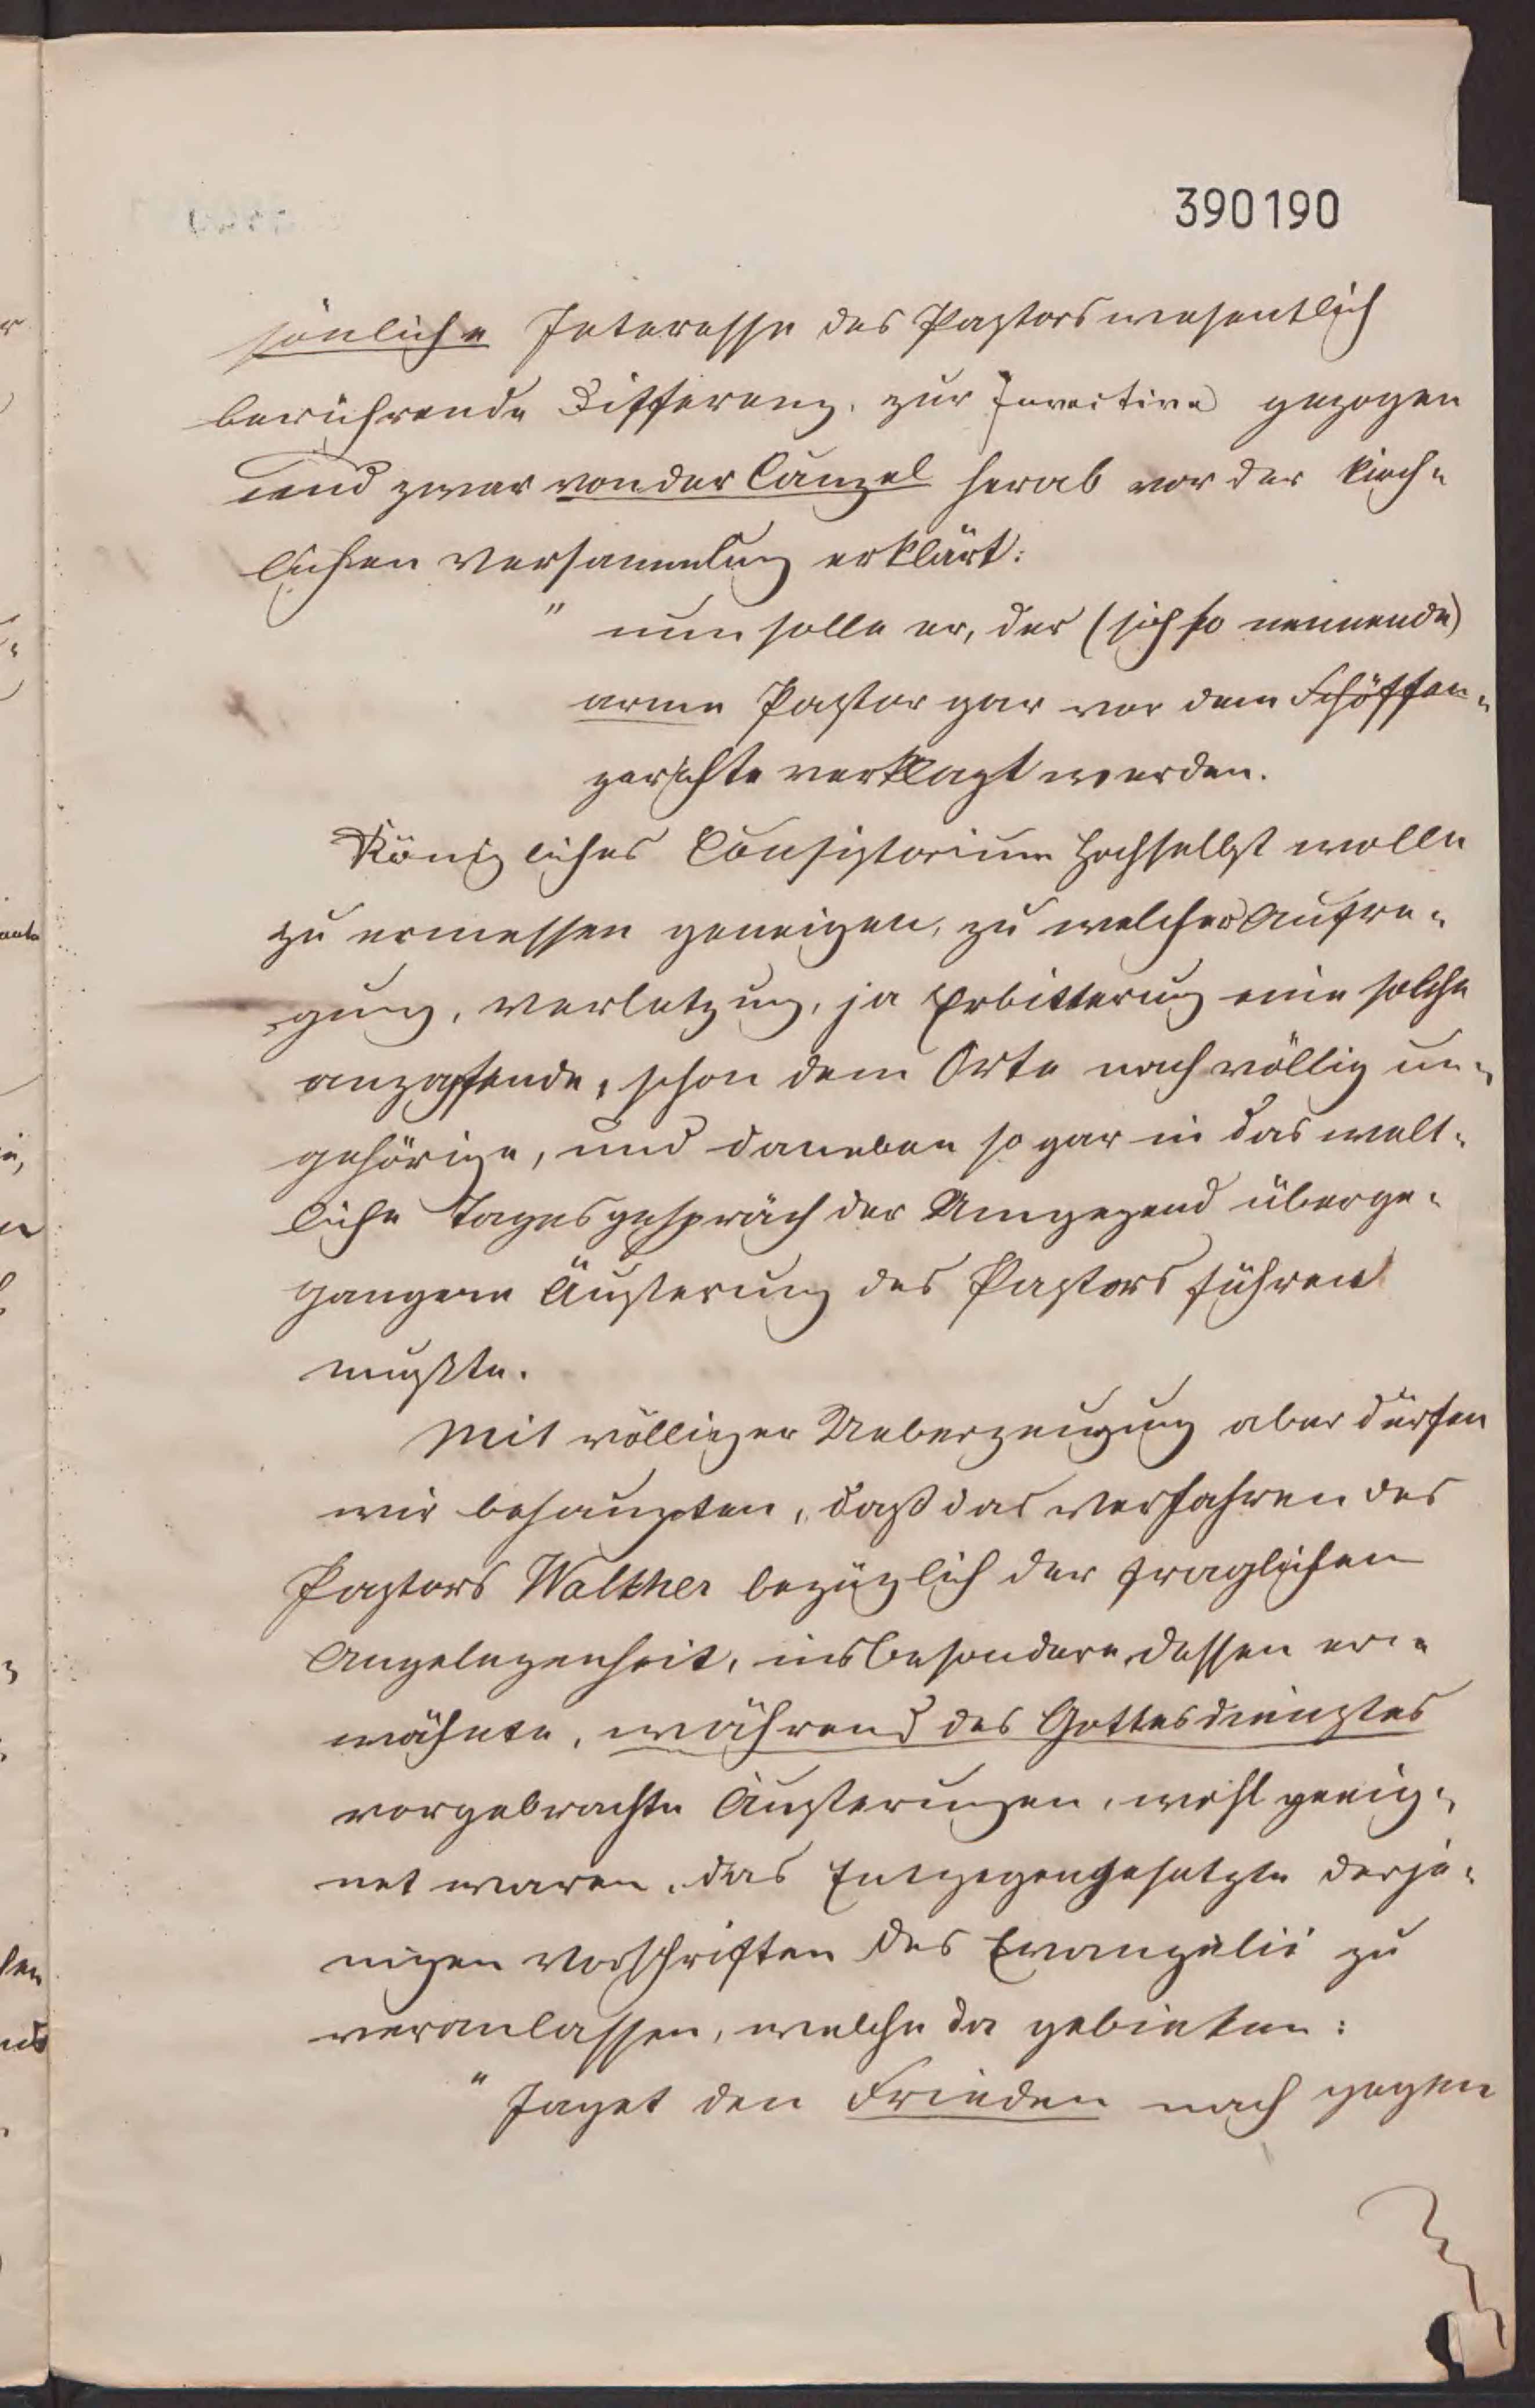 390190
sönliche Interesse des Pastors wesentlich
berührende Differenz, zur Invective gezogen
und zwar von der Canzel herab vor der kirch-
lichen Versammlung erklärt:
" nun solle er, der (sich so nennende)
arme Pastor gar vor dem Schöffen-
gerichte verklagt werden.
Königliches Consistorium Hochselbst wolle
zu ermessen geneigen, zu welcher Aufre-
gung, Verletzung, ja Erbitterung eine solche
anzapfende, schon dem Orte nach völlig un-
gehörige, und daneben sogar in das welt-
liche Tagesgespräch der Umgegend überge-
gangene Äußerung des Pastors führen
mußte.
Mit völliger Ueberzeugung aber dürfen
wir behaupten, daß das Verfahren des
Pastors Walther bezüglich der fraglichen
Angelegenheit, insbesondere dessen er-
wähnte, während des Gottesdienstes
vorgebrachte Äußerungen, wohl geeig-
net waren, das Entgegengesetzte derje-
nigen Vorschriften des Evangelii zu
veranlassen, welche da gebieten:
" Jaget den Frieden nach gegen